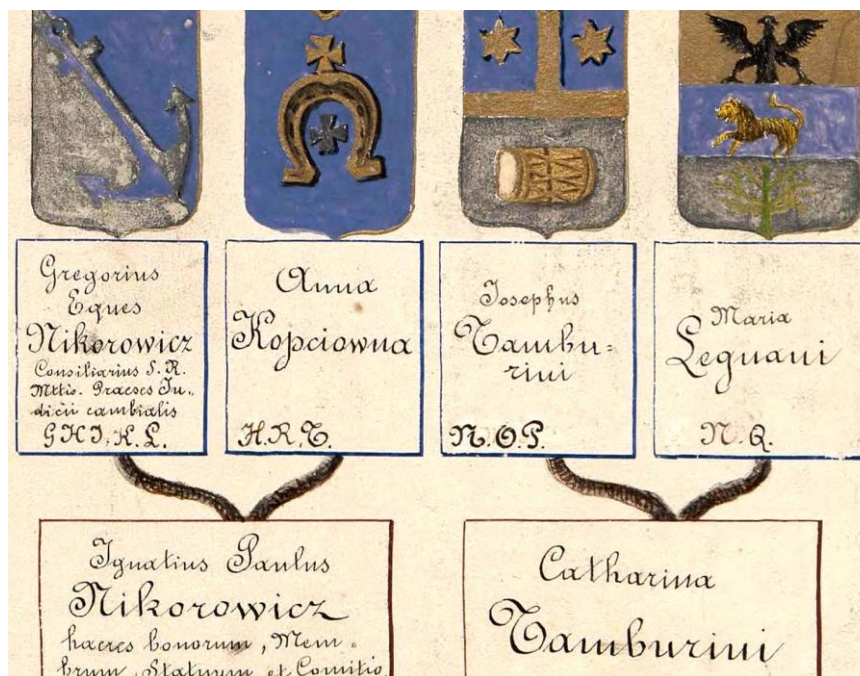 Gregorius
Eques
Nikorowicz
Consiliarius S. R.
Mttis. Praeses Ju„
dicii cambialis
G.H.I.K.L.
Anna
Kopciowna
H.R.T.
Josephus
Tambu=
rini
N.O.P.
Maria
Legnani
N.Q.
Ignatius Paulus
Nikorowicz
haeres bonorum, Mem„
brum Statuum et Comitio
Catharina
Tamburini